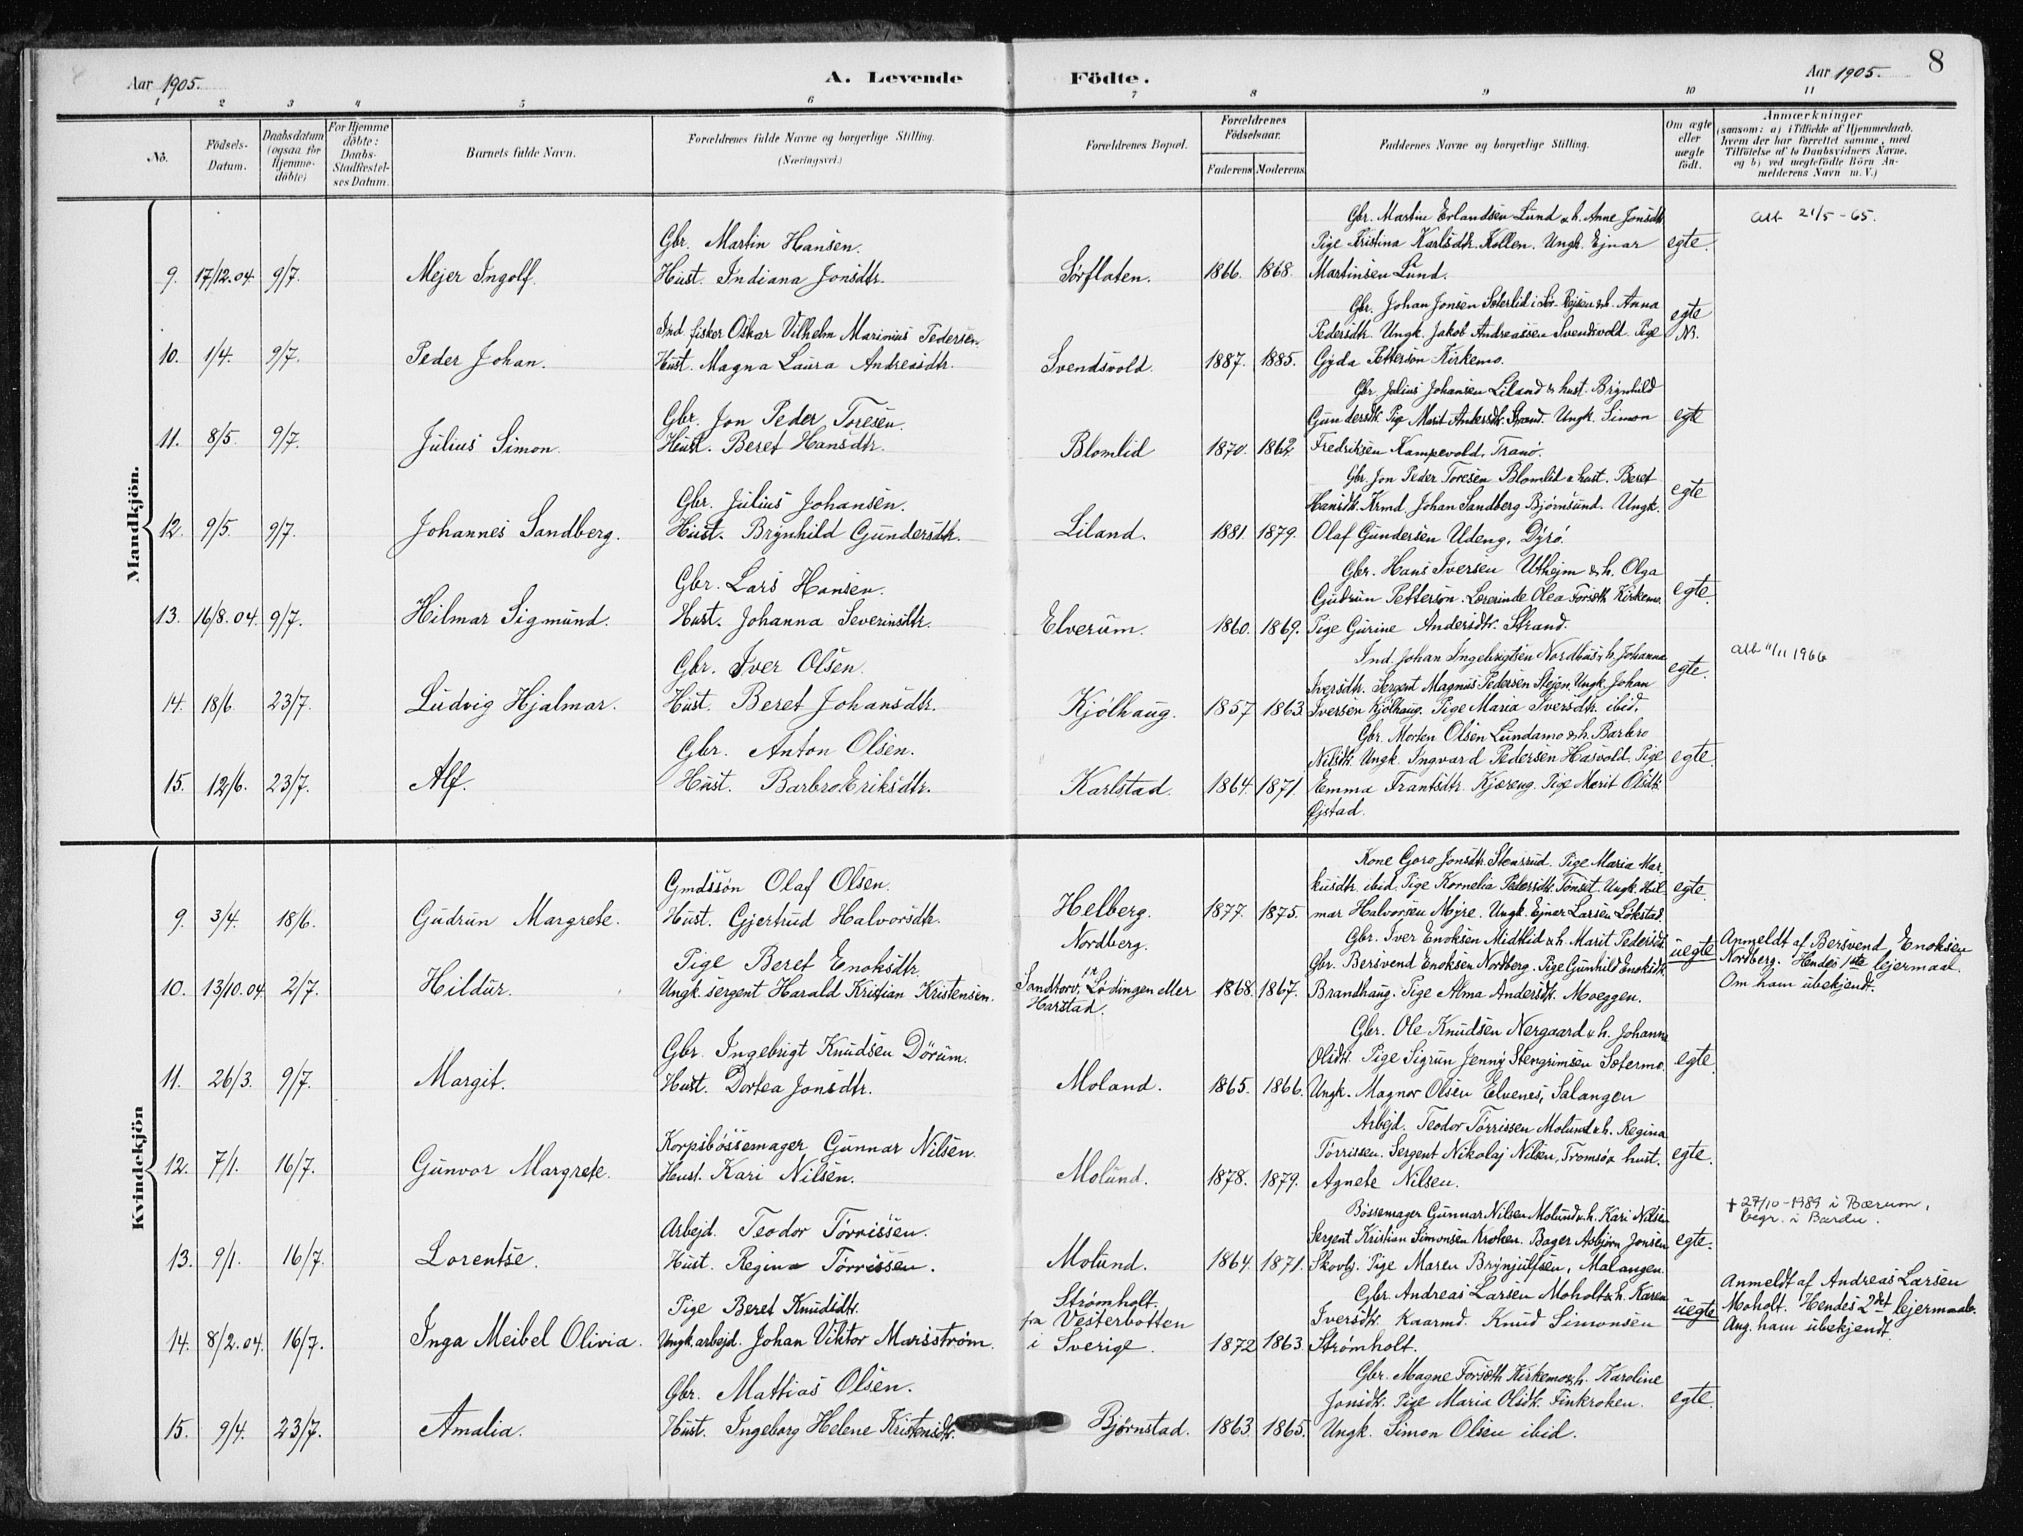 8
Aar 1905.
A. Levende Födte.
Aar 1905.
1 2 3 4 5 6 7 8 9 10 11
No.
Födsels-Datum.
Daabsdatum (ogsaa for Hjemme-döbte)
For Hjemme döbte: Daabs-Stadfæstel-ses Datum.
Barnets fulde Navn.
Forældrenes fulde Navne og borgerlige Stilling.
(Næringsvei.)
Forældrenes Bopæl.
Forældrenes Födselsaar.
Faderens Moderens
Faddernes Navne og borgerlige Stilling.
Om ægte eller uægte födt.
Anmærkninger
(saasom: a) i Tilfælde af Hjemmedaab, hvem der har forrettet samme, med Tilföielse af to Daabsvidners Navne, og b) ved uægtefödte Börn An-melderens Navn m. V.)
Mandkjön.
Gbr. Martin Erlandsen Lund & h. Anne Jonsdtr.
Gbr. Martin Hansen. Pige Kristina Karlsdtr. Kollen. Ungk. Ejnar egte. Att 21/5-65.
9. 17/12.04. 9/7. Mejer Ingolf. Hust. Indiana Jonsdtr. Sørflaten. 1866. 1868. Martinsen Lund.
Gbr. Johan Jonsen Seterlid i Sør-Rejsen & h. Anna
Ind. fisker Oskar Vilhelm Marinius Pedersen Pedersdtr. Ungk. Jakob Andreassen Svendsvold. Pige egte NB.
10. 1/4. 9/7. Peder Johan. Hust. Magna Laura Andreasdtr. Svendsvold. 1887. 1885. Gyda Petterson Kirkemo.
Gbr. Julius Johansen Liland & hust. Brynhild
Gbr. Jon Peder Toresen. Gundersdtr. Pige Marit Andersdtr. Strand. Ungk. Simon egte
11. 8/5. 9/7. Julius Simon. Hust. Beret Hansdtr. Blomlid 1870. 1862. Fredriksen Kampevold, Tranø.
Gbr. Jon Peder Toresen Blomlid & hust. Beret
Gbr. Julius Johansen. Hansdtr. Krmd. Johan Sandberg Bjørnsund. Ungk. egte
12. 9/5. 9/7. Johannes Sandberg. Hust. Brynhild Gundersdtr. Liland. 1881. 1879. Olaf Gundersen Udeng, Dyrø.
Gbr. Hans Iversen Uthejm & h. Olga
Gbr. Lars Hansen. Gudrun Petterson. Lærerinde Olea Forseth Kirkemo. egte.
13. 16/8.04. 9/7. Hilmar Sigmund. Hust. Johanna Severinsdtr. Elverum. 1860. 1869. Pige Gurine Andersdtr. Strand.
Ind. Johan Ingebrigtsen Nordhus & h. Johanna Att 11/11 1966
Gbr. Iver Olsen. Iversdtr. Sergent Magnus Pedersen Stejen. Ungk. Johan egte.
14. 18/6. 23/7. Ludvig Hjalmar. Hust. Beret Johansdtr. Kjølhaug. 1857 1863. Iversen Kjølhaug. Pige Maria Iversdtr. ibid.
Gbr. Morten Olsen Lundamo & h. Barbro
Gbr. Anton Olsen. Nilsdtr. Ungk. Ingvard Pedersen Hasvold. Pige egte.
15. 12/6. 23/7. Alf. Hust. Barbro Eriksdtr. Karlstad. 1864. 1871. Emma Frantsdtr. Kjæreng. Pige Marit Olsdtr.
Øjstad.
Kvindekjön
Kone Goro Jonsdtr. Stensrud. Pige Maria Mar-
Gmdssön Olaf Olsen. kusdtr. ibid. Pige Kornelia Pedersdtr. Tønset. Ungk. Hil- egte.
9. 3/4. 18/6. Gudrun Margrete. Hust. Gjertrud Halvorsdtr. Helberg. 1877. 1875. mar Halvorsen Myre. Ungk. Ejnar Larsen Løkstad.
Nordberg. Gbr. Iver Enoksen Midtlid & h. Marit Pedersdtr. Anmeldt af Bersvend Enoksen
Pige Beret Enoksdtr. Gbr. Bersvend Enoksen Nordberg. Pige Gunhild Enoksdtr. uegte Nordberg. Hendes 1ste lejermaal.
10. 13/10.04. 2/7. Hildur. Ungk. sergent Harald Kristian Kristensen. Sandtorv, i Lødingen eller Harstad. 1868. 1867. Brandhaug. Pige Alma Andersdtr. Moeggen. Om ham ubekjendt.
Gbr. Ole Knudsen Nergaard & h. Johanne
Gbr. Ingebrigt Knudsen Dörum. Olsdtr. Pige Sigrun Jenny Stengrimsen Setermo. egte.
11. 26/3. 9/7. Margit. Hust. Dortea Jonsdtr. Moland. 1865. 1866. Ungk. Magnor Olsen Elvenes, Salangen
Arbejd. Teodor Tørrissen Molund & h. Regina
Korpsbøssemager Gunnar Nilsen. Tørrissen. Sergent Nikolaj Nilsen, Tromsø & hust. egte.
12. 7/1. 16/7. Gunvor Margrete. Hust. Kari Nilsen. Molund. 1878. 1879. Agnete Nilsen.
Bøssemager Gunnar Nilsen Molund & h. Kari Nilsen † 27/10-1989 i Bærum,
Arbejd. Teodor Tørrissen. Sergent Kristian Simonsen Kroken. Bager Asbjørn Jonsen egte. begr. i Bardu.
13. 9/1. 16/7. Lorentse. Hust. Regina Tørrissen. Molund. 1864. 1871. Skovly. Pige Maren Brynjulfsen, Malangen.
Strømholt. Gbr. Andreas Larsen Moholt & h. Karen Anmeldt af Andreas Larsen
Pige Beret Knudsdtr. fra Vesterbotten Iversdtr. Kaarmd. Knud Simonsen uegte Moholt. Hendes 2det lejermaal.
14. 8/2.04. 16/7. Inga Meibel Olivia. Ungk. arbejd. Johan Viktor Marsström. i Sverige. 1872 1863. Strømholt. Ang. ham ubekjendt.
Gbr. Magne Forseth Kirkemo & h. Karoline
Gbr. Mattias Olsen. Jonsdtr. Pige Maria Olsdtr. Finkroken. egte.
15. 9/4. 23/7. Amalia. Hust. Ingeborg Helene Kristensdtr. Bjørnstad. 1863. 1865. Ungk. Simon Olsen ibid.